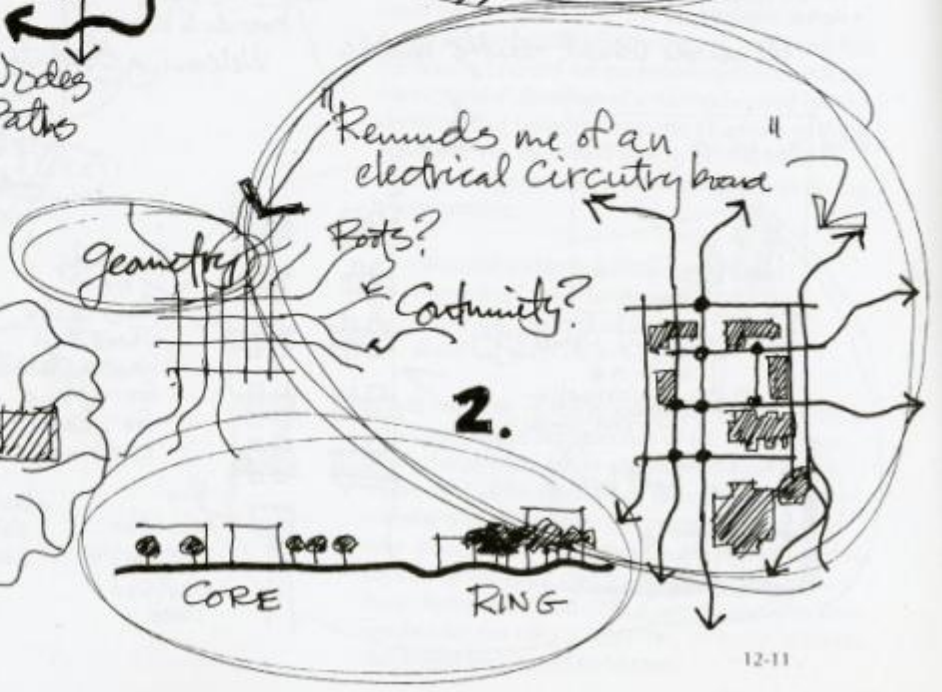 Nodes
Paths
"Reminds me of an
electrical Circuitry board"
geometry
Roots?
Continuity?
2.
CORE
RING
12-11